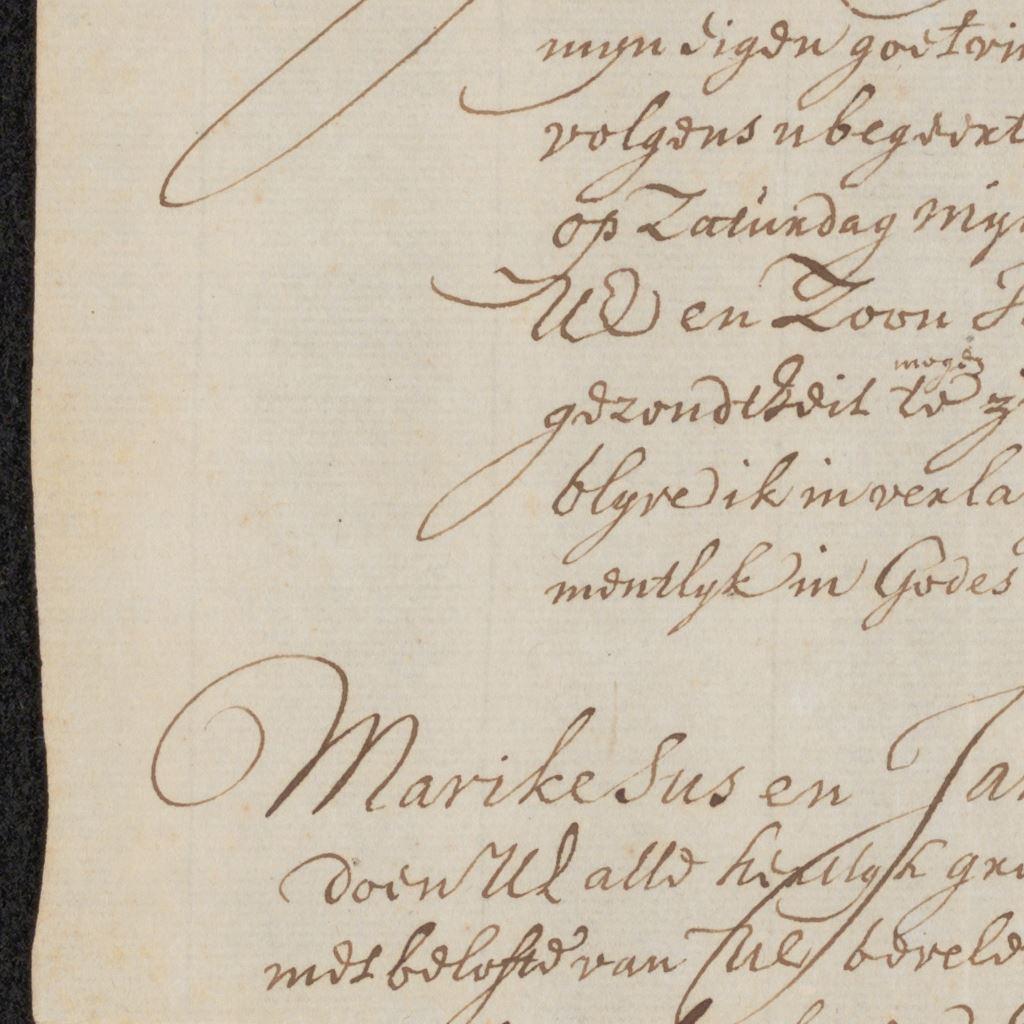 myn eigen goet
volgens u begeert
op Zaturdag
UE en Zoon
mogen
gezondtheit te
blyve ik in verla
mentlyk in Godes
Marike Sus en Jan
doen UE alle hertlyk gro
met belofte van UE bevele